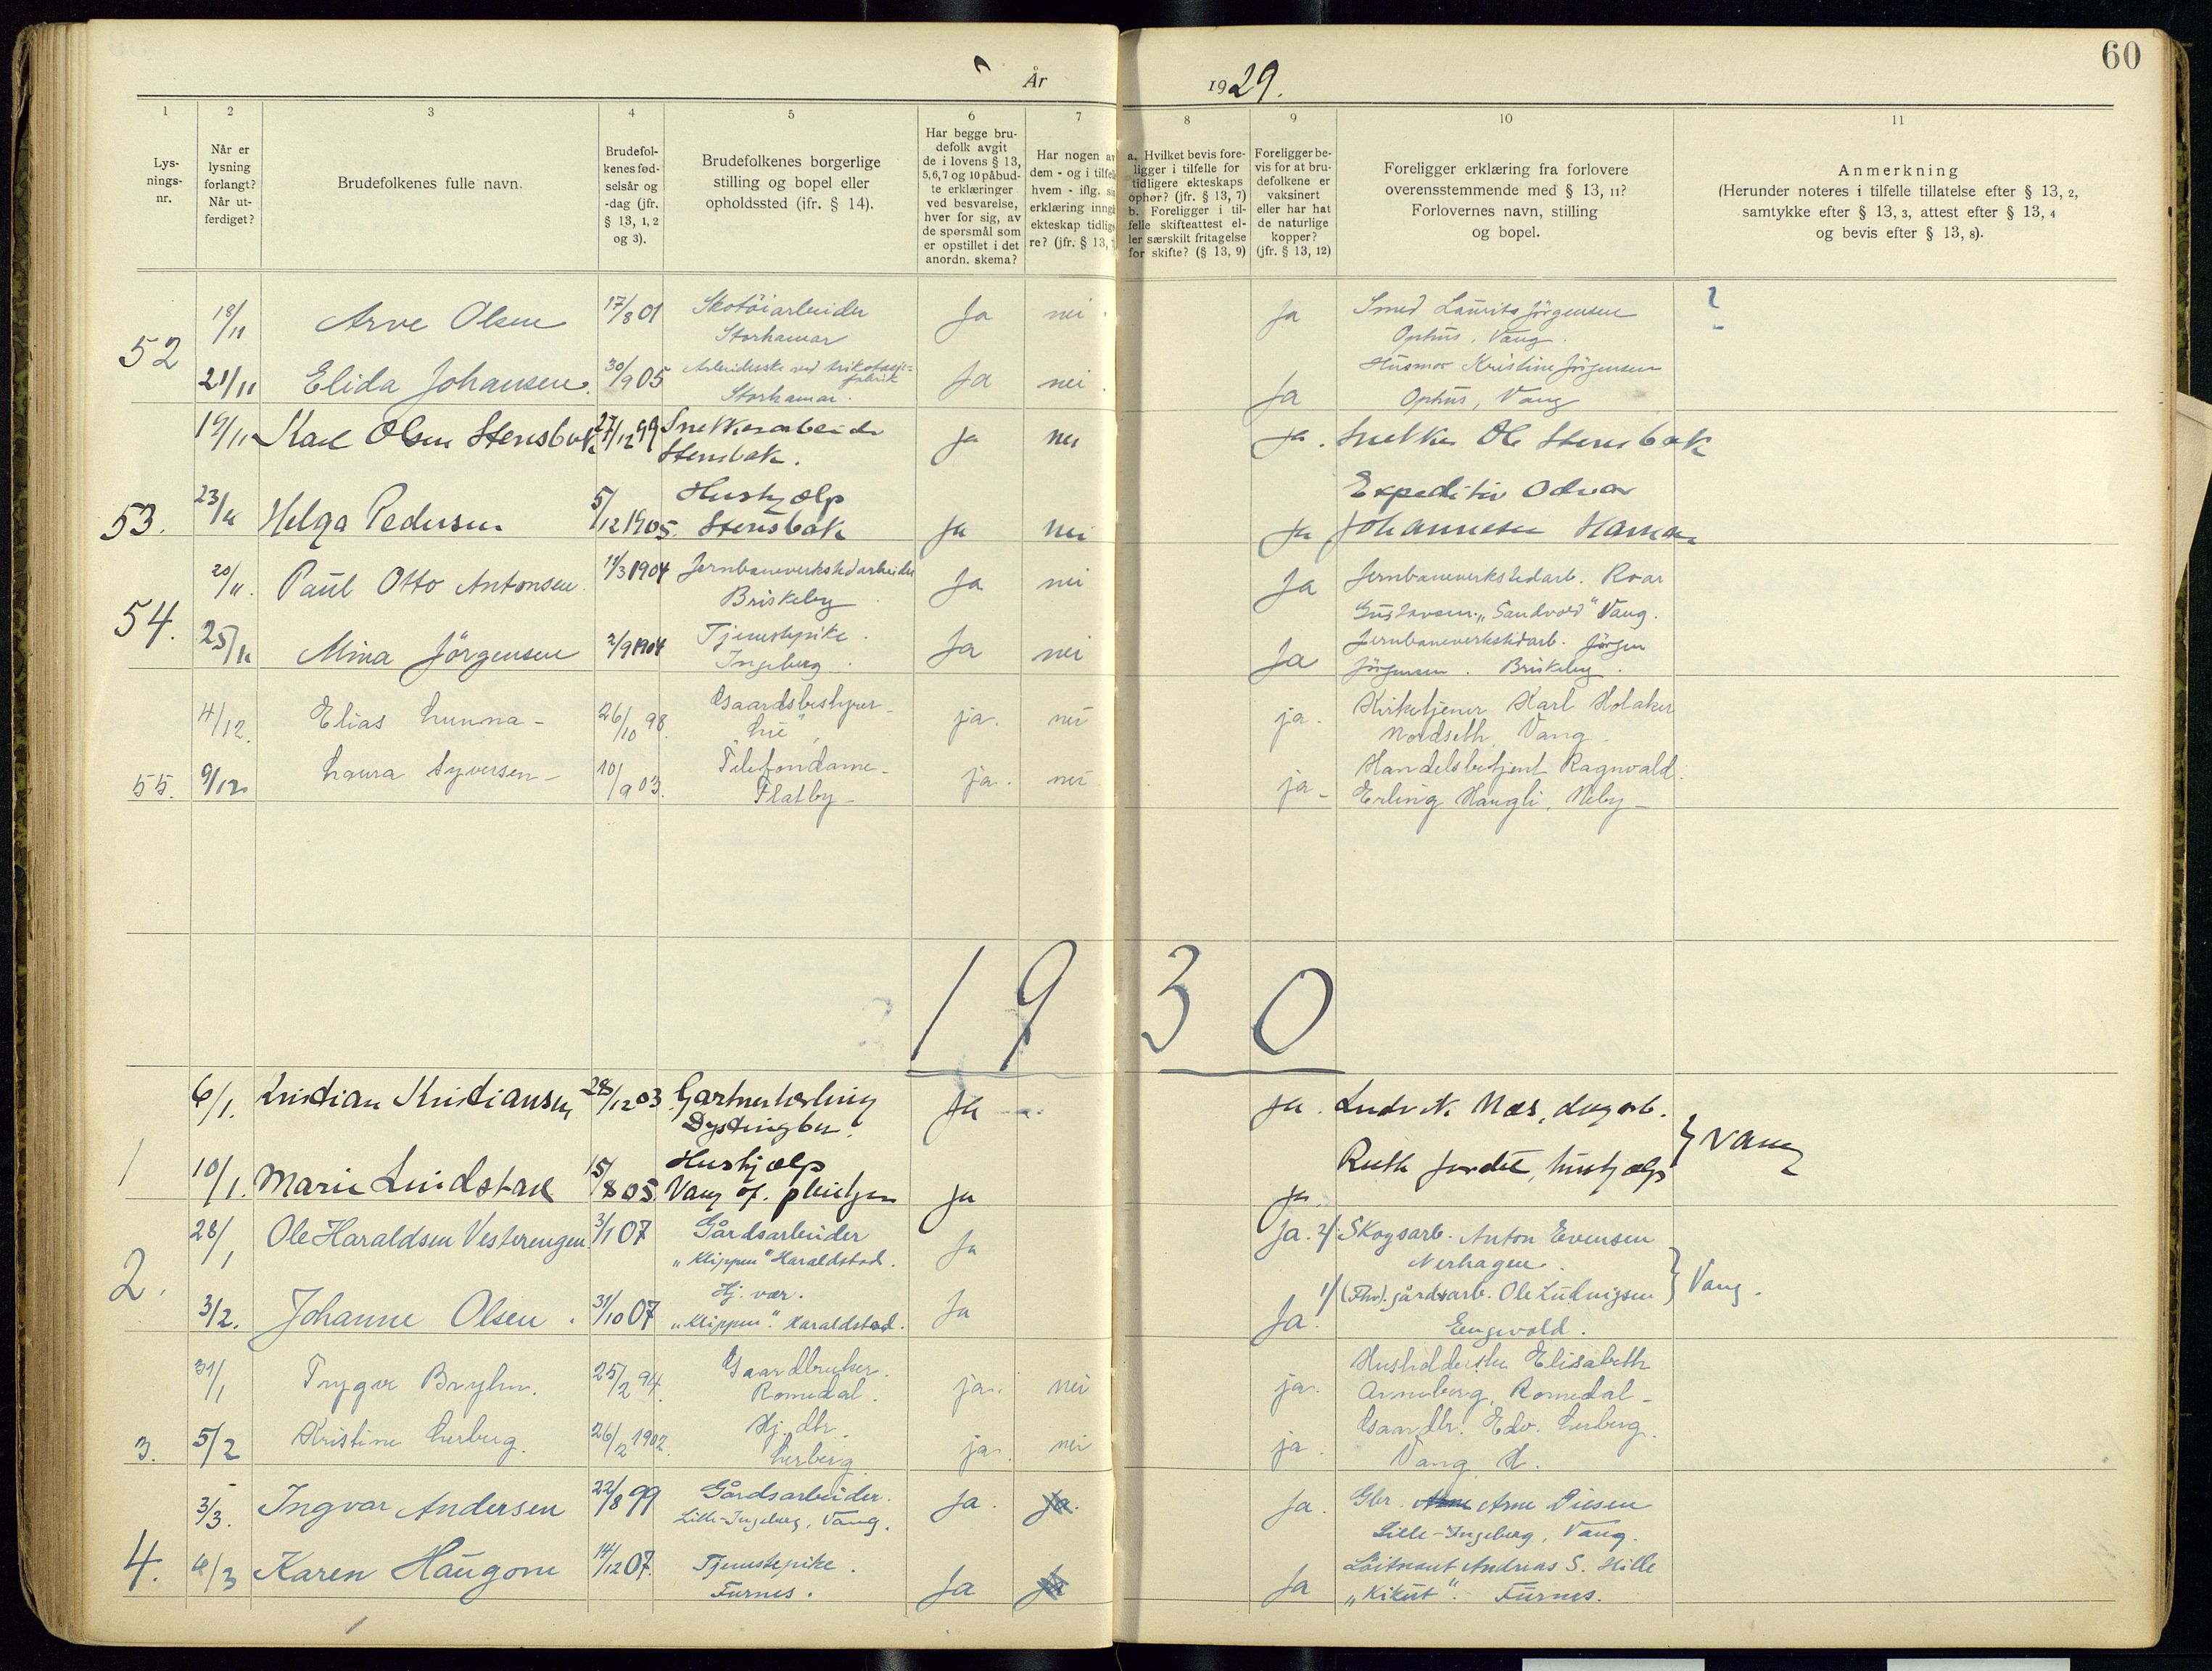 60
År
1929.
1
2
3
4
5
6
7
8
9
10
11
Lys-
nings-
nr.
Når er
lysning
forlangt?
Når ut-
ferdiget?
Brudefolkenes fulle navn.
Brudefol-
kenes fød-
selsår og
-dag (jfr.
§ 13, 1, 2
og 3).
Brudefolkenes borgerlige
stilling og bopel eller
opholdssted (jfr. § 14).
Har begge bru-
defolk avgit
de i lovens § 13,
5, 6, 7 og 10 påbud-
te erklæringer
ved besvarelse,
hver for sig, av
de spørsmål som
er opstillet i det
anordn. skema?
Har nogen av
dem - og i tilfel
hvem - iflg. si
erklæring inng
ekteskap tidlig
re? (jfr. § 13,
a. Hvilket bevis fore-
ligger i tilfelle for
tidligere ekteskaps
ophør? (jfr. § 13, 7)
b. Foreligger i til-
felle skifteattest el-
ler særskilt fritagelse
for skifte? (§ 13, 9)
Foreligger be-
vis for at bru-
defolkene er
vaksinert
eller har hat
de naturlige
kopper?
(jfr. § 13, 12)
Foreligger erklæring fra forlovere
overensstemmende med § 13, 11?
Forlovernes navn, stilling
og bopel.
Anmerkning
(Herunder noteres i tilfelle tillatelse efter § 13, 2,
samtykke efter § 13, 3, attest efter § 13, 4
og bevis efter § 13, 8).
52
18/11 Arve Olsen 17/8 01 Skotöiarbeider Ja nei Ja Smed Laurits Jörgensen
Storhamar Ophus, Vang.
21/11 Elida Johansen. 30/9 05 Arbeiderske ved trikotasje- Ja nei Husmor Kristine Jörgensen
fabrik
Storhamar. Ja Ophus, Vang
19/11 Karl Olsen Stensbak 27/12 99 Snekkerarbeider ja nei ja. Snekker Ole Stensbak
Stensbak.
53. 23/11 Helga Pedersen 5/12 1905. Hushjælp Expeditør Odvar
Stensbak ja nei ja Johannesen Hamar
54.
20/11. Paul Otto Antonsen. 11/3 1904 Jernbaneverkstedarbeider Ja nei Ja Jernbaneverkstedarb. Roar
Briskeby Gustavsen. „Sandvold" Vang.
25/11 Mina Jörgensen 2/9 1904 Tjenestepike. Ja nei Ja Jernbaneverkstedarb. Jörgen
Ingeberg. Jörgensen. Briskeby.
4/12. Elias Lunna - 26/10 98. Gaardsbestyrer- ja. nei ja. Kirketjener Karl Holaker
„Lie", Nordseth, Vang -
55. 9/12 Laura Syversen - 10/9 03. Telefondame- ja. nei ja - Handelsbetjent Ragnvald
Flatby - Erling Haugli, Viby -
1930
1
6/1. Kristian Kristiansen 28/12 03 Gartnerlærling ja ja. Ludvik Næs, dagarb.
Dystingbu.
10/1. Marie Lindstad 15/8 05. Hushjælp ja ja. Ruth Jordet, hushjælp } Vang
Vang of. pleiehjem
2.
28/1 Ole Haraldsen Vesterengen. 3/1 07 Gårdsarbeider Ja Ja. 2/ Skogsarb. Anton Evensen
„Klippen" Haraldstad. Nerhagen.
3/2. Johanne Olsen. 31/10 07 Hj. vær. Ja Ja. 1/ (Fhv). gårdsarb. Ole Ludvigsen } Vang.
„Klippen". Haraldstad. Engvold.
31/1 Trygve Bryhn. 25/2 94. Gaardbruker. ja. nei ja. Husholderske Elisabeth
Romedal. Arneberg, Romedal -
3. 5/2 Kristine Lerberg. 26/2 1902. Hj. dtr. ja. nei ja. Gaardbr. Edv. Lerberg.
Lerberg Vang H.
3/3. Ingvar Andersen 22/8 99 Gårdsarbeider. Ja. Ja. Ja. Gbr. Arne Diesen
Lille-Ingeberg, Vang. Lille-Ingeberg, Vang.
4. 6/3 Karen Haugom 14/12 07. Tjenestepike. Ja Ja Ja Löitnant Andreas S. Hille
Furnes. „Kikut". Furnes.